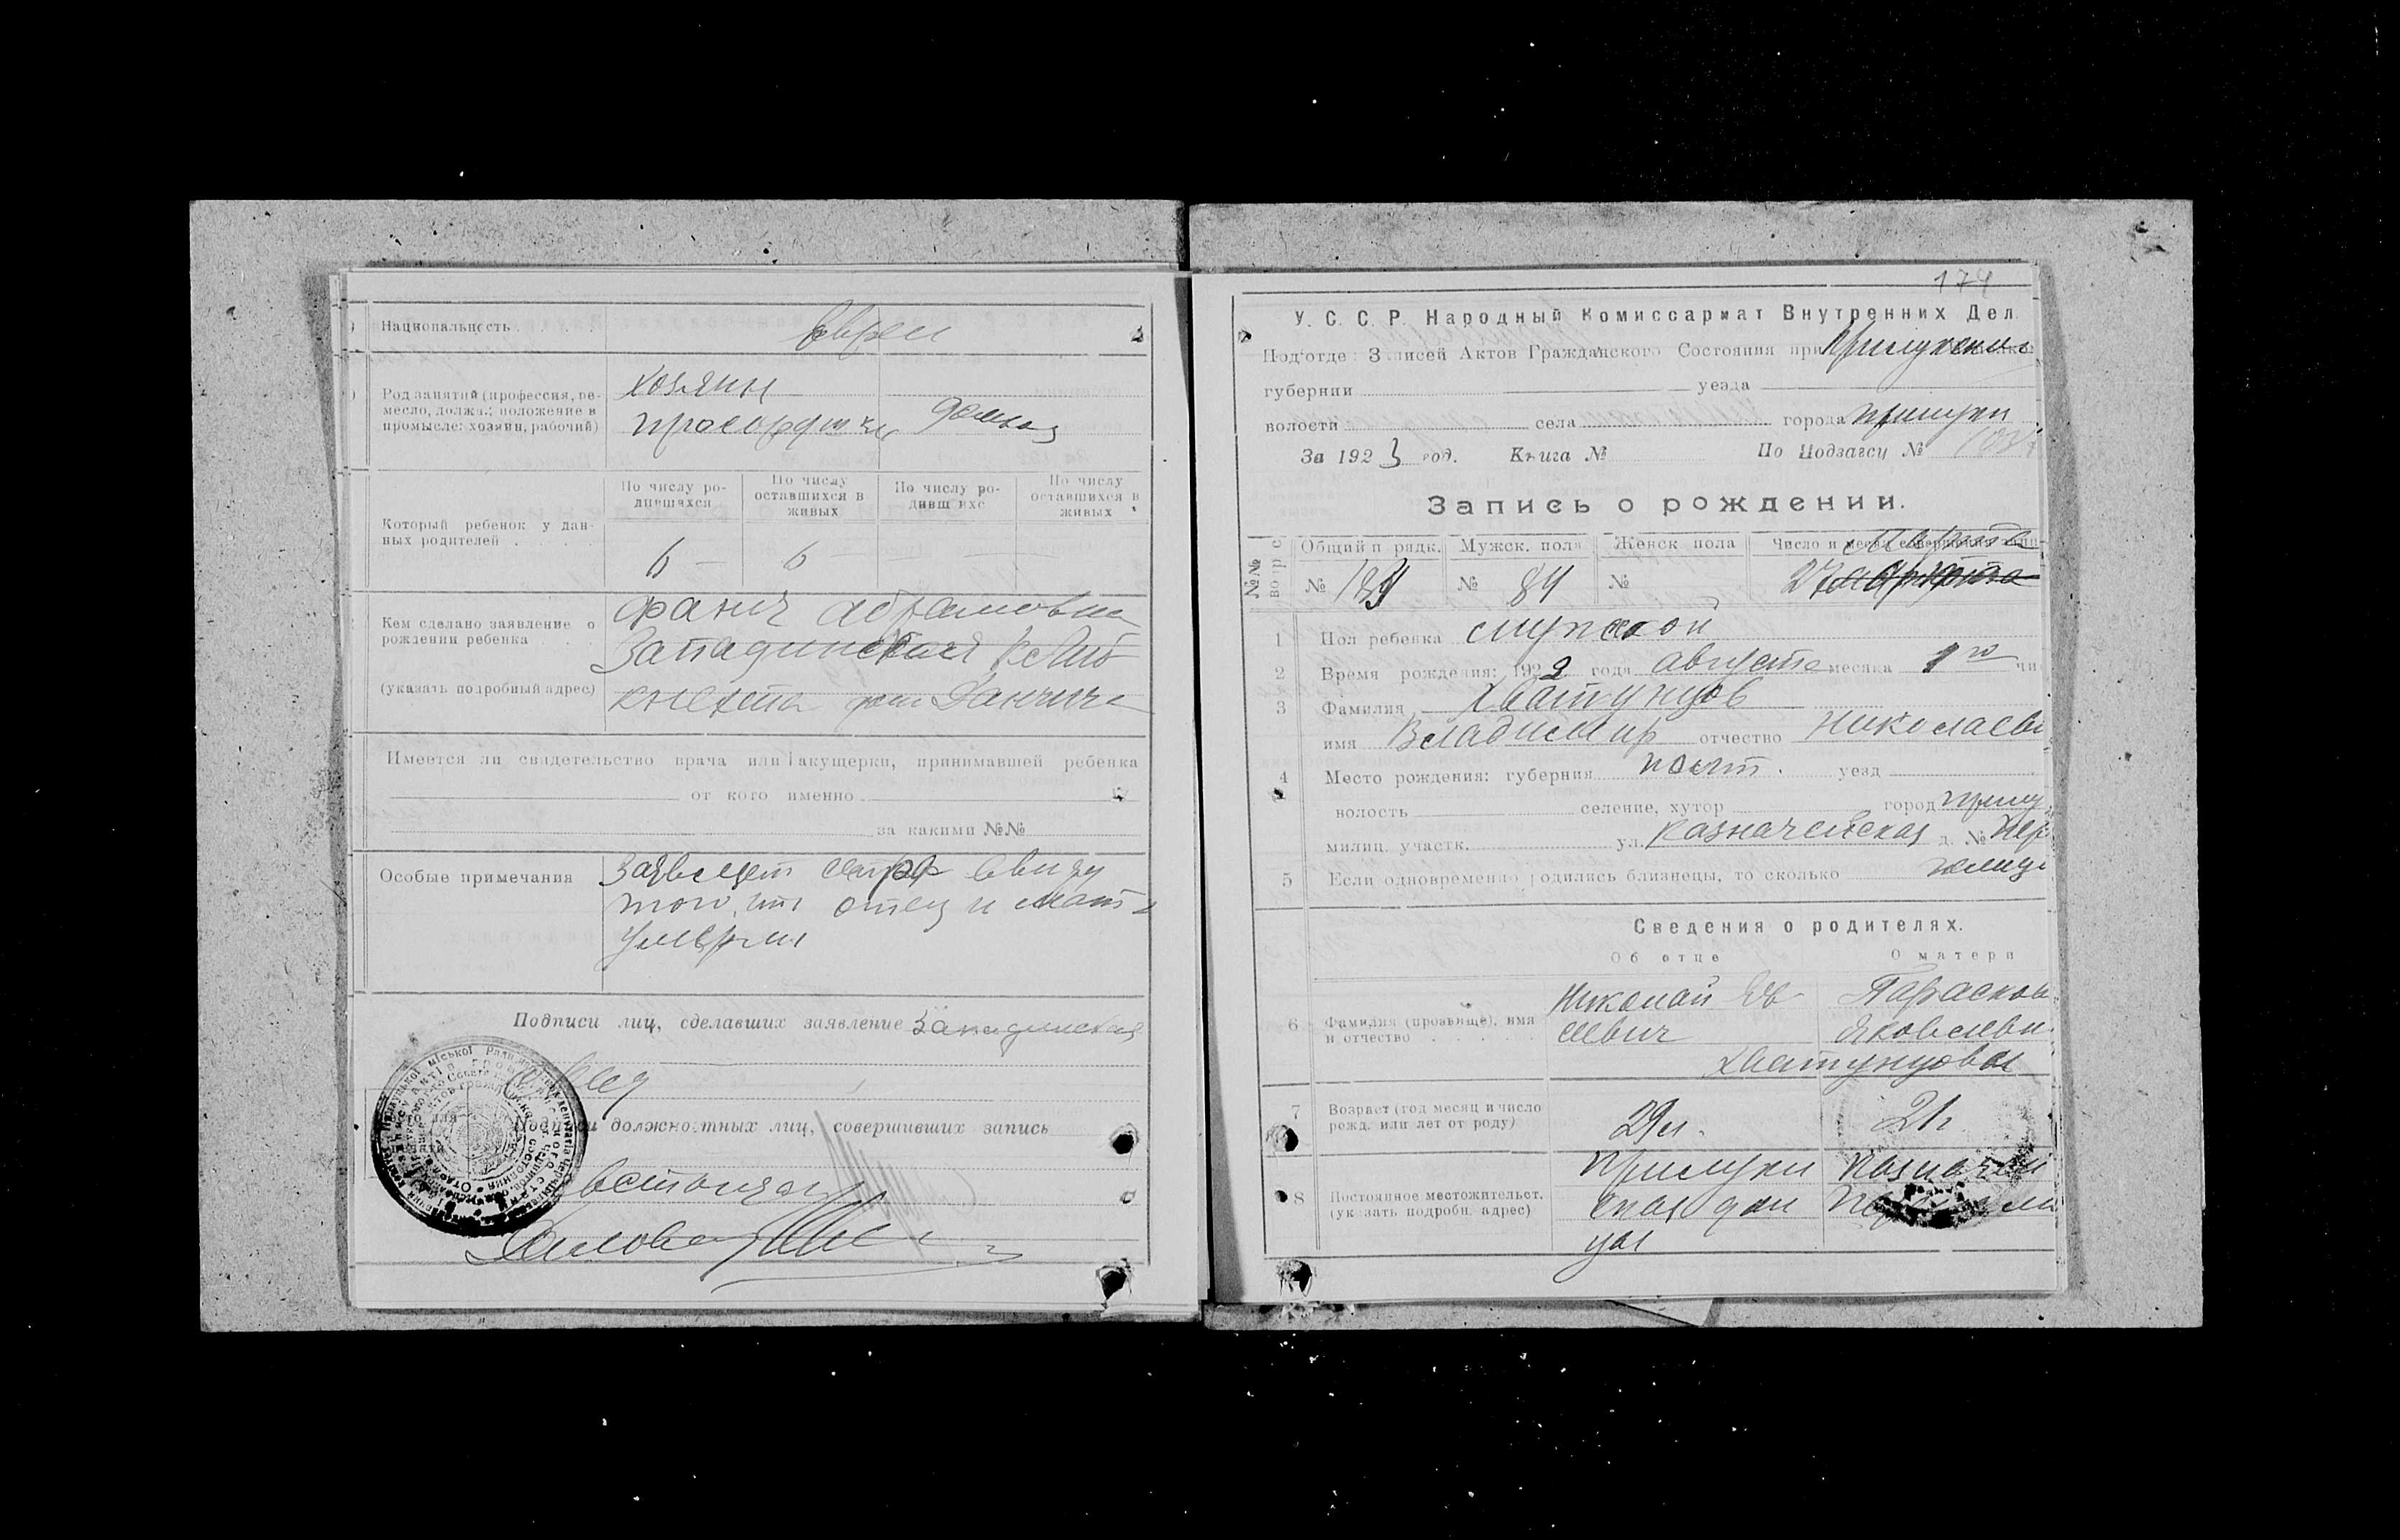 Национальность
евреи
Род занятий (профессия, ре-
месло, должн.; положение в
промысле: хозяин, рабочий)
хозяин
просорушки
домхоз
Который ребенок у дан-
ных родителей
По числу ро-
дившихся
По числу
оставшихся в
живых
По числу ро-
дивш ихс
По числу
оставшихся в
живых
6 — 6 —
Кем сделано заявление о
рождении ребенка
(указать подробный адрес)
Фаня Абрамовна
Западинская К. Либ
кнехта дом
Имеется ли свидетельство врача или акушерки, принимавшей ребенка
от кого именно
за какими №№
Особые примечания
Заявляет сестра ввиду
того, что отец и мать
умерли
Подписи лиц, сделавших заявление Западинская
должностных лиц, совершивших запись
174
У. С. С. Р. Народный Комиссариат Внутренних Дел.
Под'отде Записей Актов Гражданского Состояния при Прилукском
губернии уезда
волости села города Прилуки
За 1923 год. Книга № По Подзагсу №
Запись о рождении.
Общий п рядк. Мужск. пола Женск пола Число и месяц совершения запи
марта
№ № 84 № 27 марта
1 Пол ребенка мужской
2 Время рождения: 1922 года августа месяца 1го чи
3 Фамилия Хватунцов
имя Владимир отчество Николаеви
4 Место рождения: губерния Полт. уезд
волость селение, хутор город Прилу
милиц. участк. ул. Казначейская д. № Пер
5 Если одновременно родились близнецы, то сколько
Сведения о родителях.
Об отце О матери
6 Фамилия (прозвище), имя
и отчество
Николай
Парасков
Яковлевн
Хватунцовы
7 Возраст (год месяц и число
рожд. или лет от роду)
29 л. 21
8 Постоянное местожительст.
(указать подробн. адрес)
Прилуки Казначей
ская дом